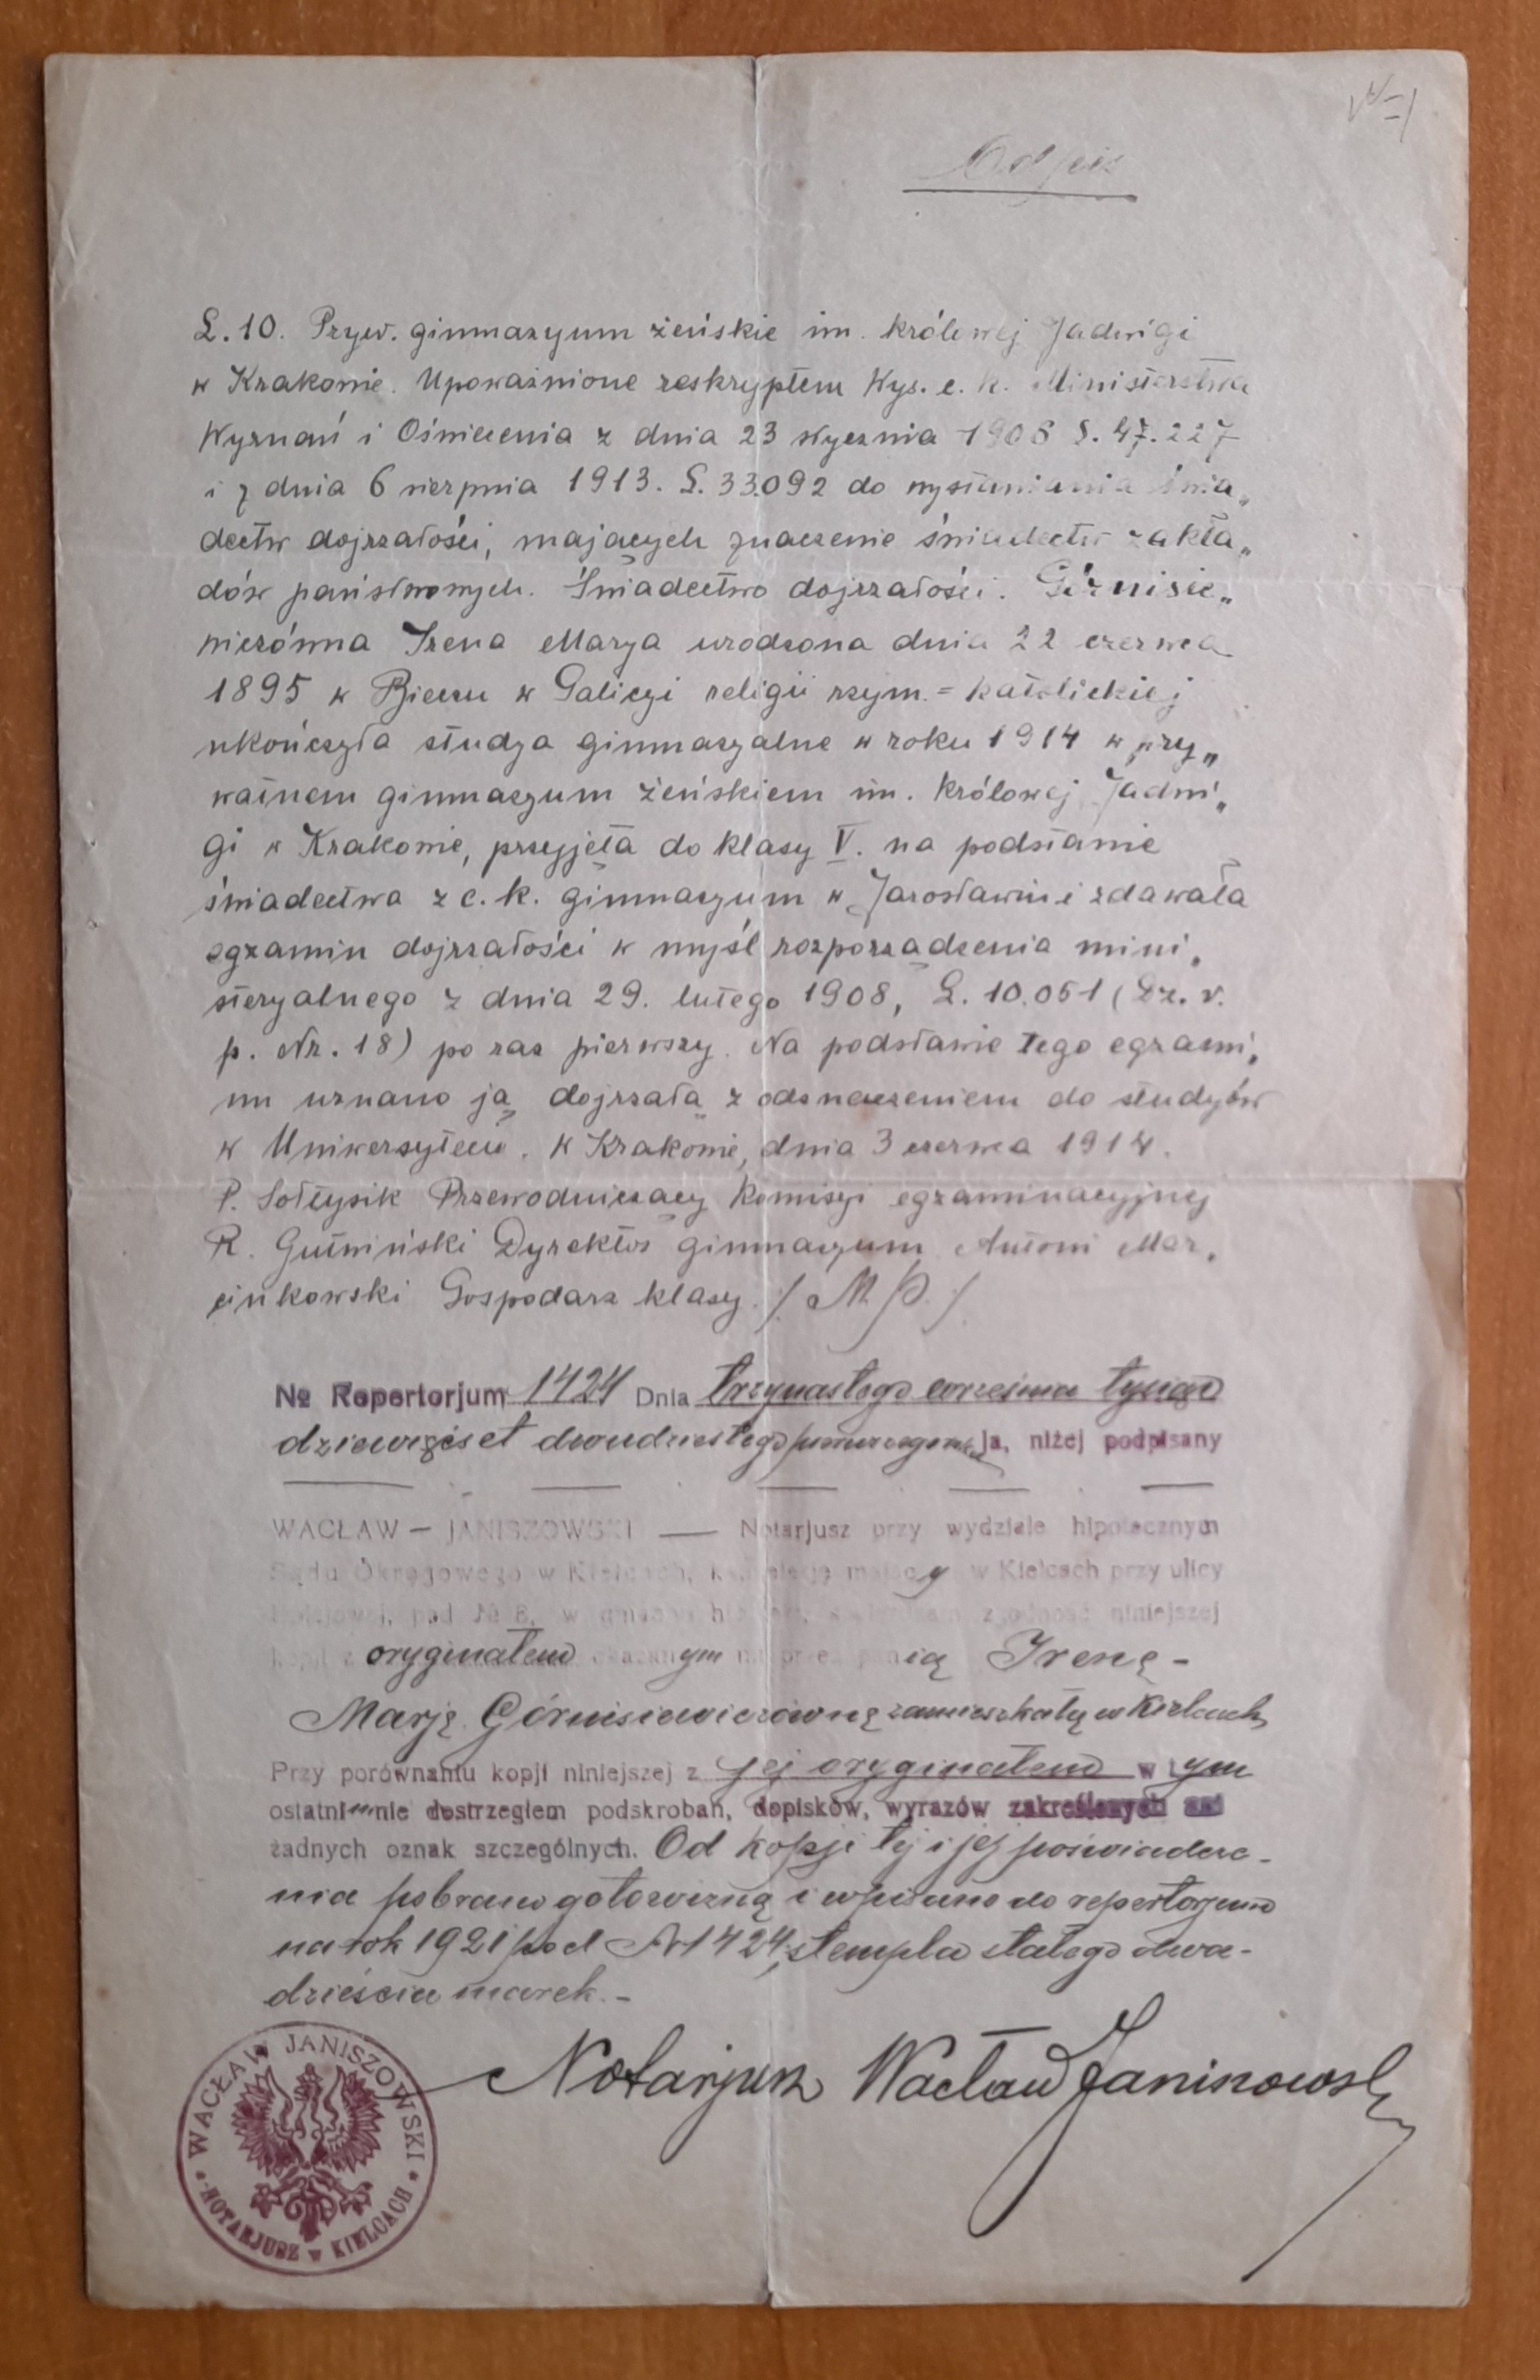 Odpis
L. 10. Pryw. gimnazyum żeńskie im. królowej Jadwigi
w Krakowie. Upoważnione reskryptem Wys. c. k. Ministerstwa
Wyznań i Oświecenia z dnia 23 stycznia 1908 L. 47.227
i z dnia 6 sierpnia 1913. L. 33.092 do wystawiania świa„
dectw dojrzałości, mających znaczenie świadectw zakła„
dów państwowych. Świadectwo dojrzałości. Górnisie„
wiczówna Irena Marya urodzona dnia 22 czerwca
1895 w Bieczu w Galicyi religii rzym.=katolickiej
ukończyła studya gimnazyalne w roku 1914 w pry„
watnem gimnazyum żeńskiem im. królowej Jadwi„
gi w Krakowie, przyjęta do klasy V. na podstawie
świadectwa z c. k. gimnazyum w Jarosławiu i zdawała
egzamin dojrzałości w myśl rozporządzenia mini„
steryalnego z dnia 29. lutego 1908, L. 10.051 (Dz. r.
p. Nr. 18) po raz pierwszy. Na podstawie tego egzami„
nu uznano ją dojrzałą z odznaczeniem do studyów
w Uniwersytecie. W Krakowie, dnia 3 czerwca 1914.
P. Sołtysik Przewodniczący Komisyi egzaminacyjnej
R. Gutwiński Dyrektor gimnazyum Antoni Mar„
cinkowski Gospodarz klasy. /: M. P. :/
№ Repertorjum 1424 Dnia trzynastego września tysiąc
dziewięćset dwudziestego pierwszego roku ja, niżej podpisany
WACŁAW — JANISZOWSKI — Notarjusz przy wydziale hipotecznym
Sądu Okręgowego w Kielcach, kancelarję mający w Kielcach przy ulicy
pod № 6, w zgodność niniejszej
kopji z oryginałem okazanym mi przez panią Irenę -
Marję Górnisiewiczównę zamieszkałą w Kielcach
Przy porównaniu kopji niniejszej z jej oryginałem w tym
ostatnim nie dostrzegłem podskrobań, dopisków, wyrazów zakreślonych ani
żadnych oznak szczególnych. Od kopji tej i jej poświadcze-
nia pobrano gotowizną i wpisano do repertorjum
na rok 1921 pod № 1424, stempla stałego dwa-
dzieścia marek. -
Notarjusz Wacław Janiszowski
WACŁAW JANISZOWSKI
NOTARJUSZ w KIELCACH